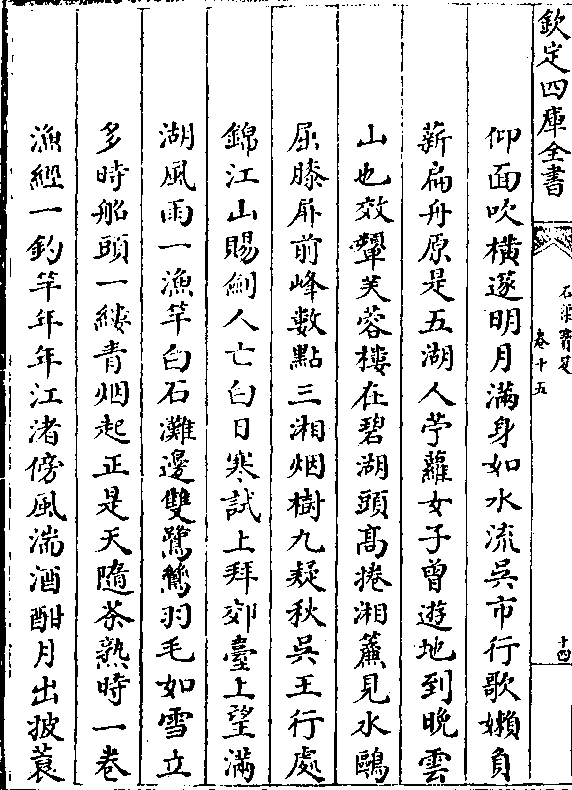 欽定四庫全書
石渠寶笈
卷十五
十四
仰面吹橫邃明月滿身如水流吳市行歌嬾負
薪扁舟原是五湖人苧蘿女子曾遊地到晚雲
山也效顰芙蓉樓在碧湖頭高捲湘簾見水鷗
屈膝屏前峰數點三湘烟樹九疑秋吳王行處
錦江山賜劍人亡白日寒試上拜郊臺上望滿
湖風雨一漁竿白石灘邊雙鷺鷥羽毛如雪立
多時船頭一縷青烟起正是天隨茶熟時一卷
漁經一釣竿年年江渚傍風湍酒酣月出披蓑